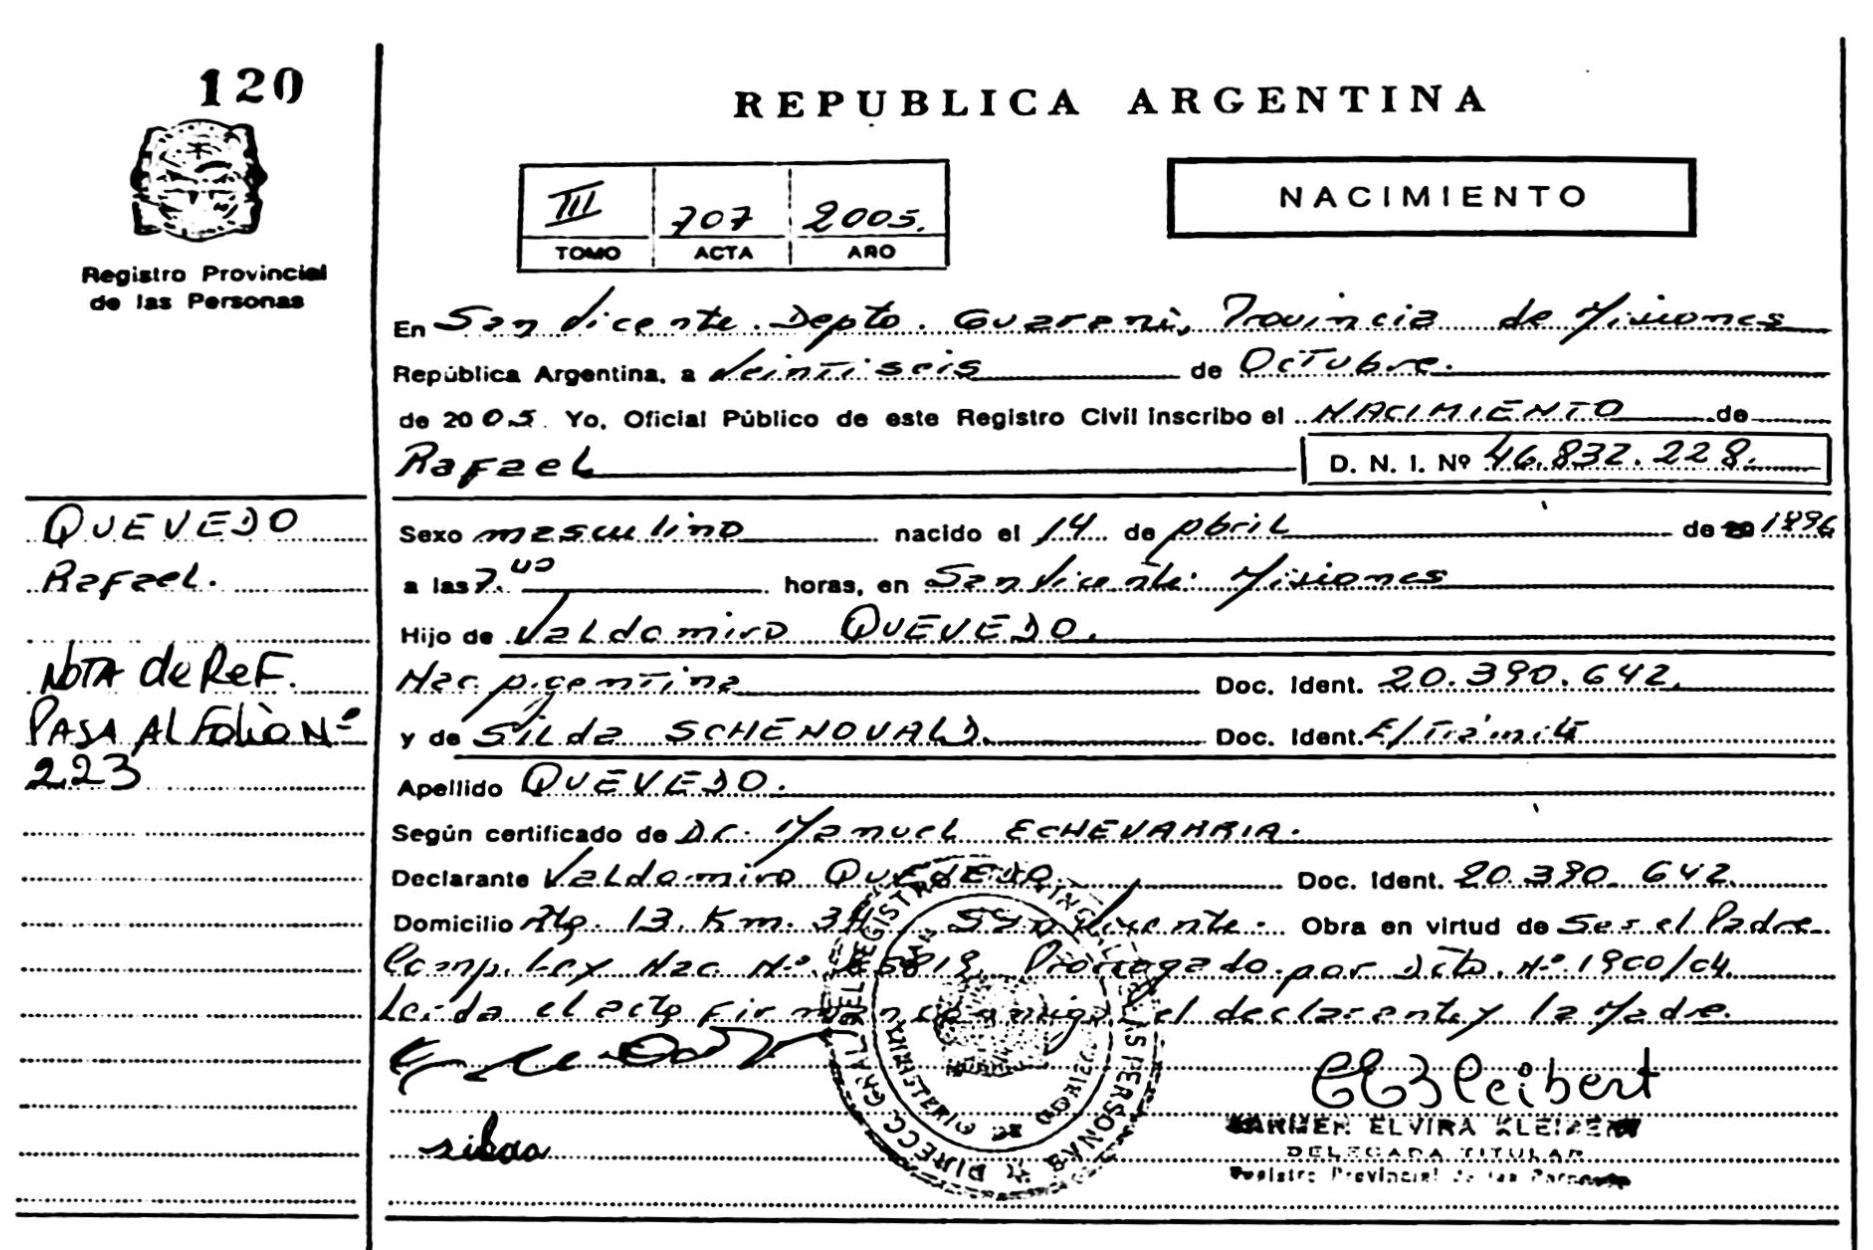 120
Registro Provincial
de las Personas
QUEVEDO
Rafael.
NOTA de Ref.
PASA AL Folio Nº
223
REPUBLICA ARGENTINA
III 707 2005.
TOMO ACTA AÑO
NACIMIENTO
En San Vicente. Depto. Guarani, Provincia de Misiones
República Argentina, a Veintiseis de Octubre.
de 2005. Yo, Oficial Público de este Registro Civil inscribo el NACIMIENTO de
Rafael D. N. I. Nº 46.832.228.
Sexo masculino nacido el 14 de Abril de 20 1996
a las 7.00 horas, en San Vicente. Misiones
Hijo de Valdomiro QUEVEDO.
Nac. Argentina Doc. Ident. 20.390.642.
y de Silda SCHENOVALD. Doc. Ident. E/Trámite
Apellido QUEVEDO.
Según certificado de Dr. Manuel ECHEVARRIA.
Declarante Valdomiro QUEVEDO Doc. Ident. 20.390.642
Domicilio Km. San Vicente. Obra en virtud de Ser el Padre
Comp. Ley Nac. Nº 25819 Prorrogado por Dcto. Nº 1900/04.
Leida el acta firman conmigo el declarante y la Madre.
DIRECC. GRAL. DEL REGISTRO PROVINCIAL DE LAS PERSONAS
MINISTERIO DE GOBIERNO
silda
CE Kleibert
CARMEN ELVIRA KLEIBERT
DELEGADA TITULAR
Registro Provincial de las Personas